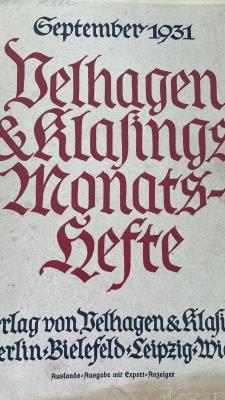 September 1931
Velhagen
& Klasings
Monats-
Hefte
erlag von Velhagen & Klasi
erlin·Bielefeld·Leipzig·Wie
Auslands-Ausgabe mit Export-Anzeiger